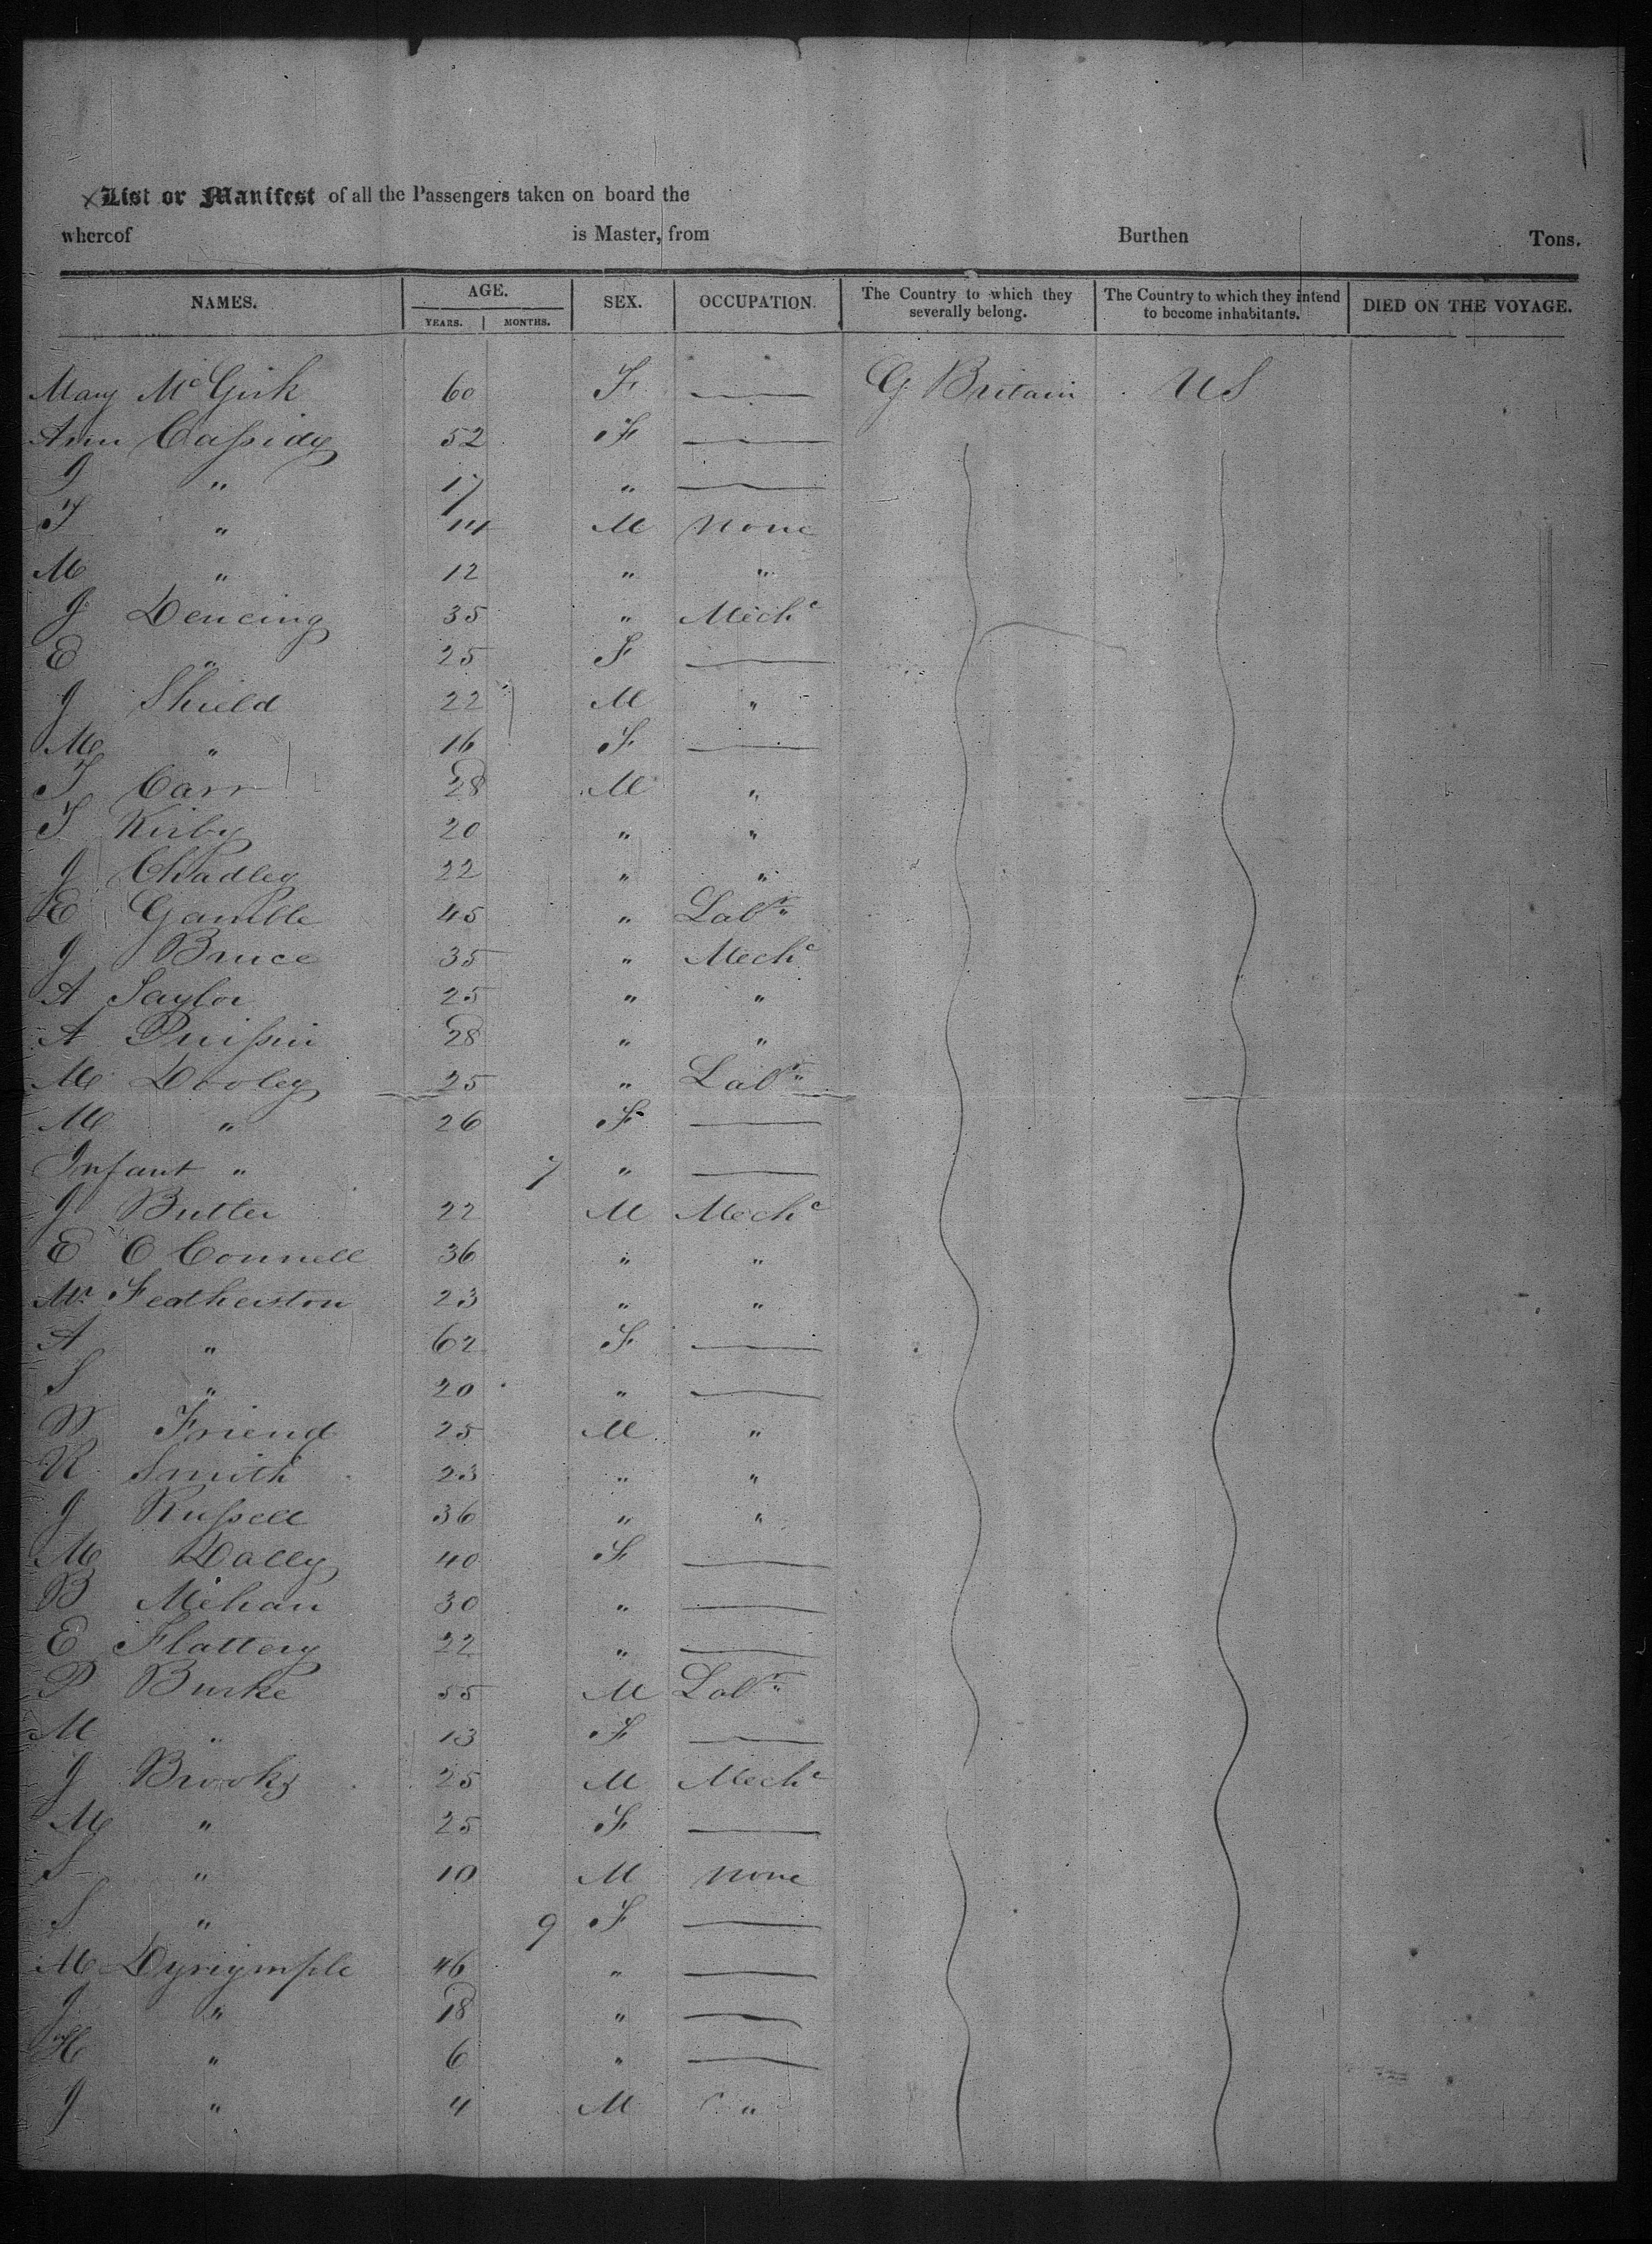 List or Manifest of all the Passengers taken on board the
whereof is Master, from Burthen Tons.
NAMES. AGE. SEX. OCCUPATION. The Country to which they severally belong. The Country to which they intend to become inhabitants. DIED ON THE VOYAGE.
YEARS. MONTHS.
Mary McGirk 60 F — G Britain US
Ann Cassidy 52 F —
J " 17 " —
T " 14 M none
M " 12 " "
J 35 " Mechc
E " 25 F —
J Shield 22 M "
M " 16 F —
T Carr 28 M "
T Kirby 20 " "
J Chadley 22 " "
E Gamble 45 " Labr
J Bruce 35 " Mechc
A Taylor 25 " "
A 28 " "
M Dooley 25 " Labr
M " 26 F —
Infant " 7 " —
J Butler 22 M Mechc
E O Connell 36 " "
Featherston 23 " "
A " 62 F —
S " 20 " —
W Friend 25 M "
R Smith 23 " "
J Russell 36 " "
M Dally 40 F —
B Mehan 30 " —
E Flattery 22 " —
P Burke 55 M Labr
M " 13 F —
J Brooks 25 M Mechc
M " 25 F —
S " 10 M none
S " 9 F —
M Dyrymple 46 " —
J " 18 " —
H " 6 " —
J " 4 M "